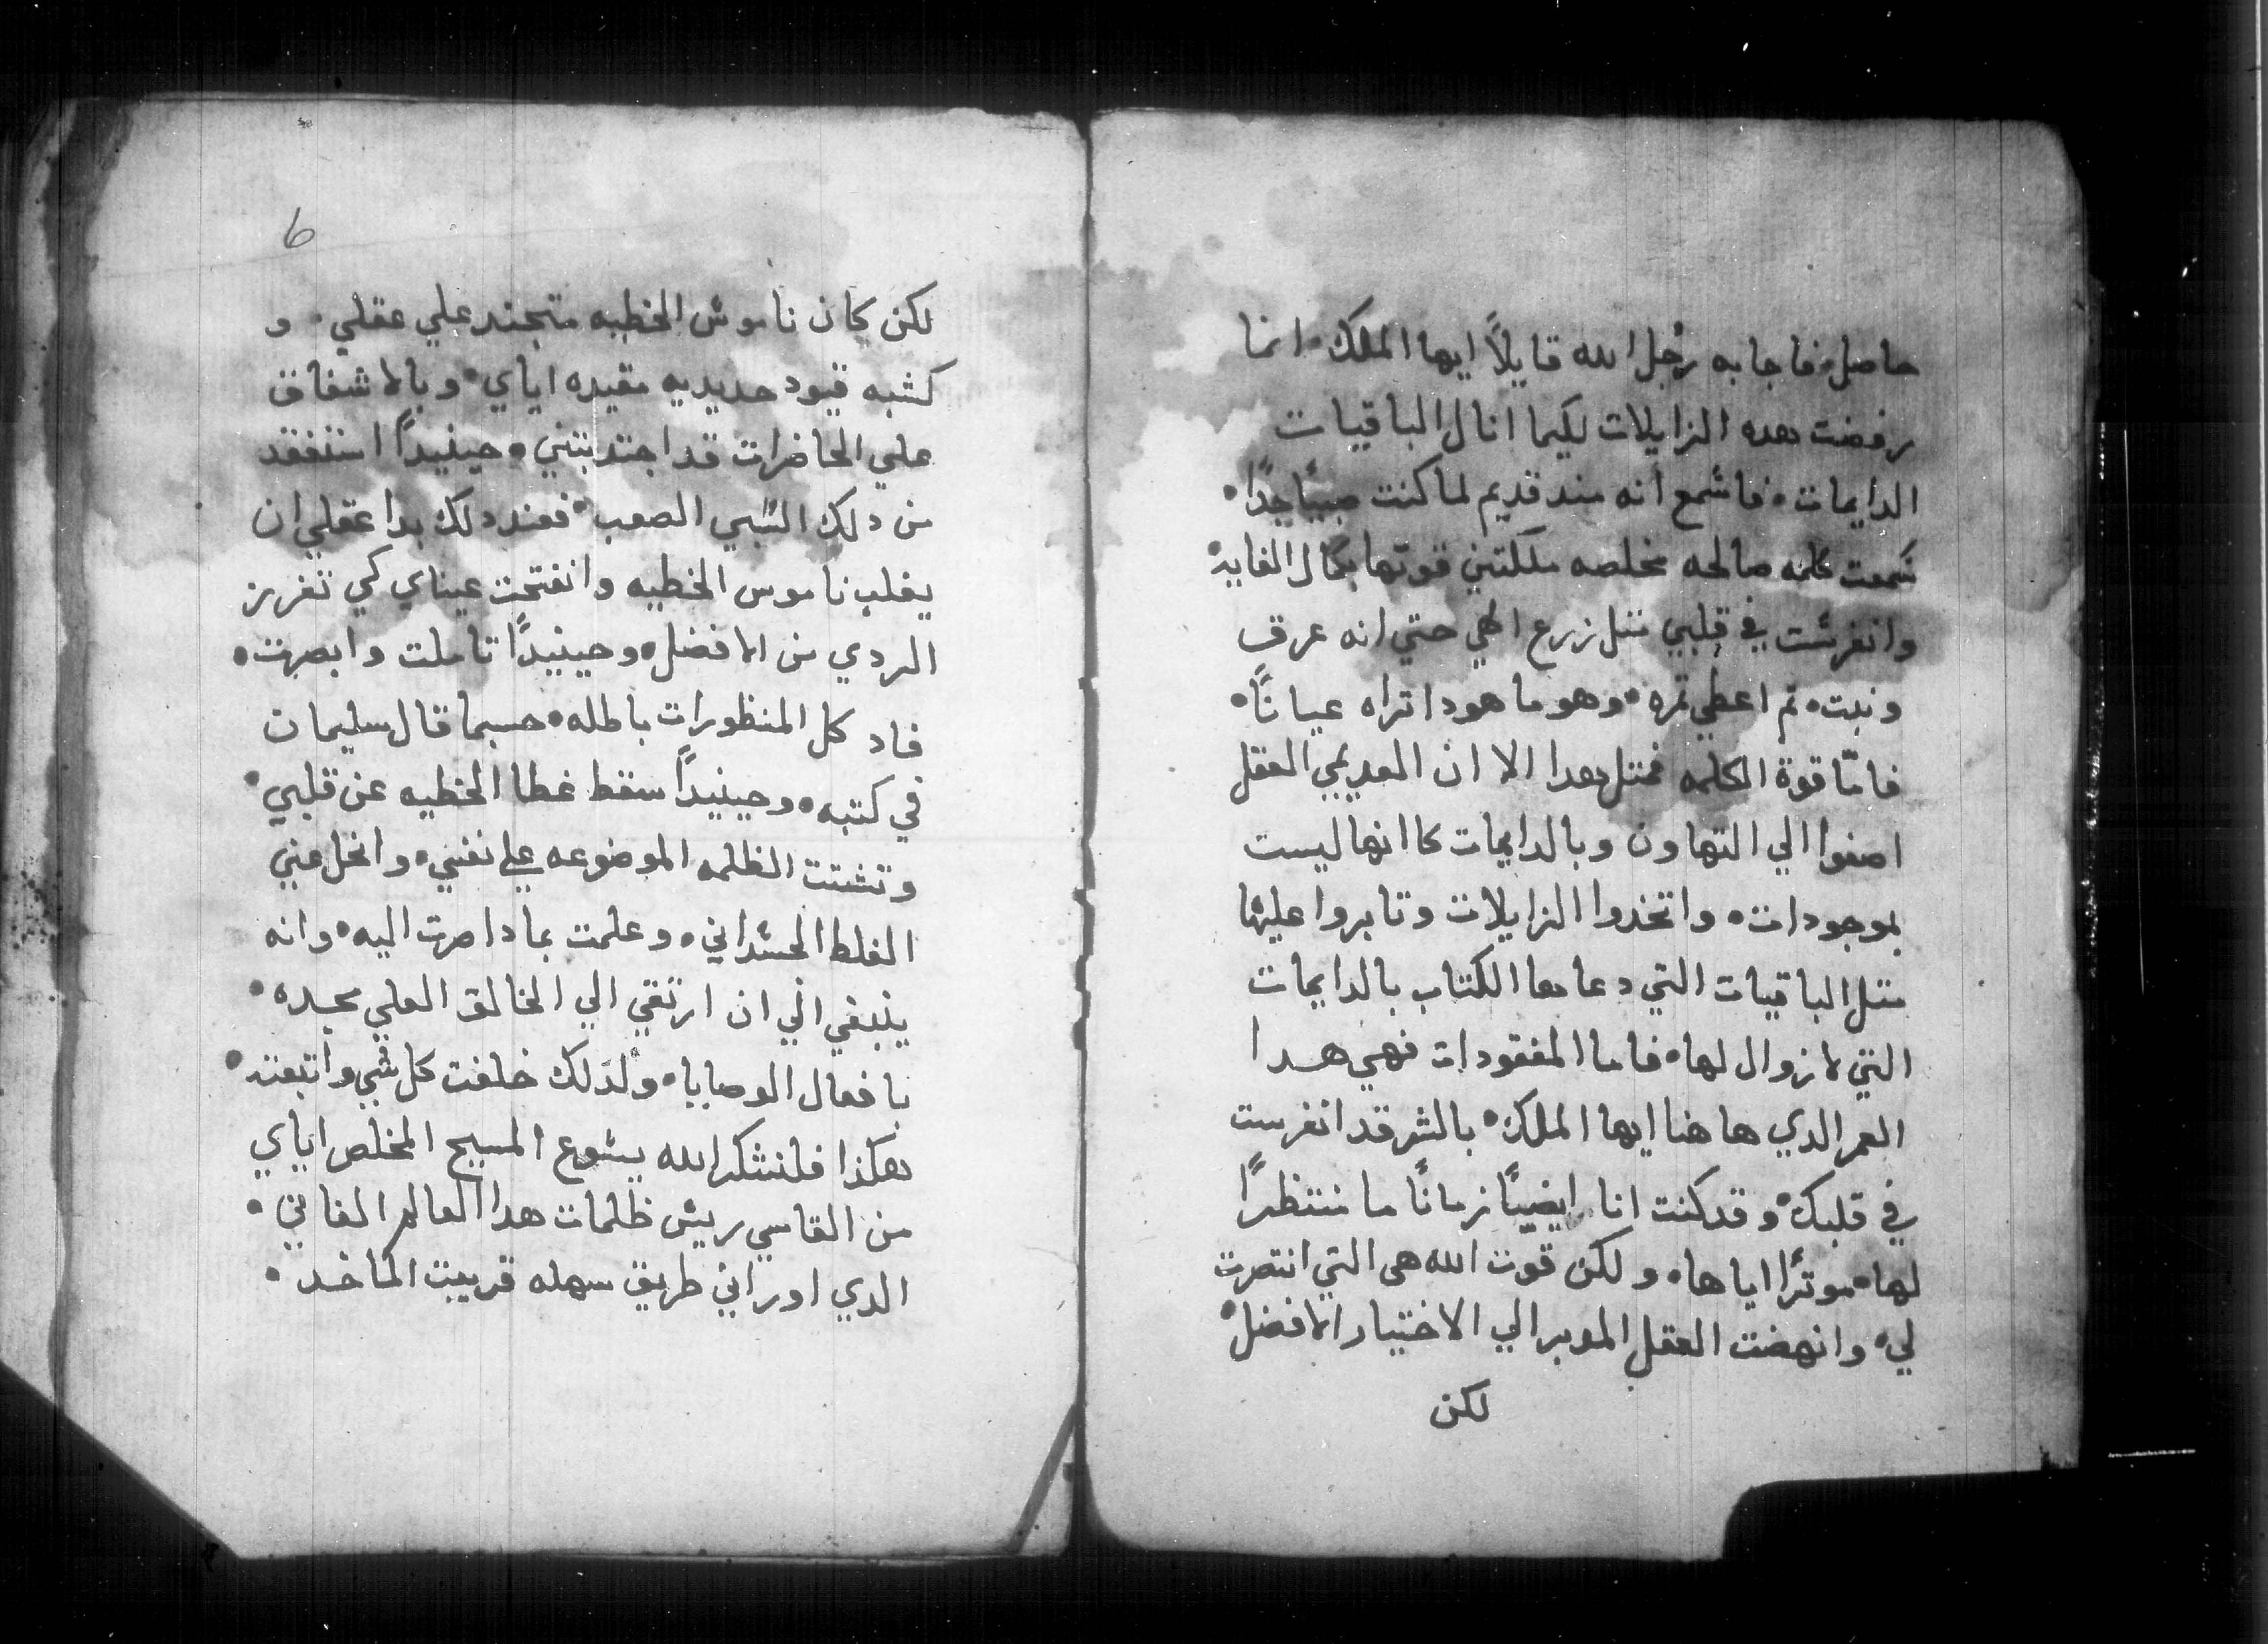 حاصل، فاجابه رجل الله قايلاً ايها الملك، انما
رفضت هده الزايلات لكيما انال الباقيات
الدايمات، فاسمع انه مند قديم لما كنت صبيًا جدًا،
سمعت كلمه صالحه مخلصه ملكتني قوتها بكمال الفايده
وانغرست في قلبي متل زرع الهي حتي انه عرق
ونبت، تم اعطي تمره، وهو ما هودا تراه عيانًا،
فامّا قوة الكلمه فمتل هدا الا ان العديمي العقل
اصغوا الي التهاون وبالدايمات كاانها ليست
بموجودات، واتخدوا الزايلات وتابروا عليها
متل الباقيات التي دعاها الكتاب بالدايمات
التي لا زوال لها، فاما المفقودات فهي هدا
العمر الدي ها هنا ايها الملك، بالشر قد انغرست
في قلبك، وقد كنت انا ايضيًا زمانًا ما منتظرًا
لها، موترًا اياها، ولكن قوت الله هى التي انتصرت
لي، وانهضت العقل المدبر الي الاختيار الافضل،
لكن
6
لكن كان ناموس الخطيه متجند علي عقلي، و
كشبه قيود حديديه مقيده اياي، وبالاشفاق
علي الحاضرات قد اجتدبتني، حينيدًا استفقد
من دلك السبي الصعب، فعند دلك بدا عقلي ان
يغلب ناموس الخطيه وانفتحت عيناي كي تفرز
الردي من الافضل، وحينيدًا تاملت وابصرت،
فاد كل المنظورات باطله، حسبما قال سليمان
في كتبه، وحينيدًا سقط غطا الخطيه عن قلبي،
وتشتت الظلمه الموضوعه علي نفسي، وانحل عني
الغلط الجسداني، وعلمت بمادا صرت اليه، وانه
ينبغي الي ان ارتقي الي الخالق العلي مجده،
بافعال الوصايا، ولدلك خلفت كل شي واتبعته،
هكذا فلنشكر الله يسوع المسيح المخلص اياي
من القاسي ريس ظلمات هدا العالم الفاني،
الدي اوراني طريق سهله قريبت الماخد،